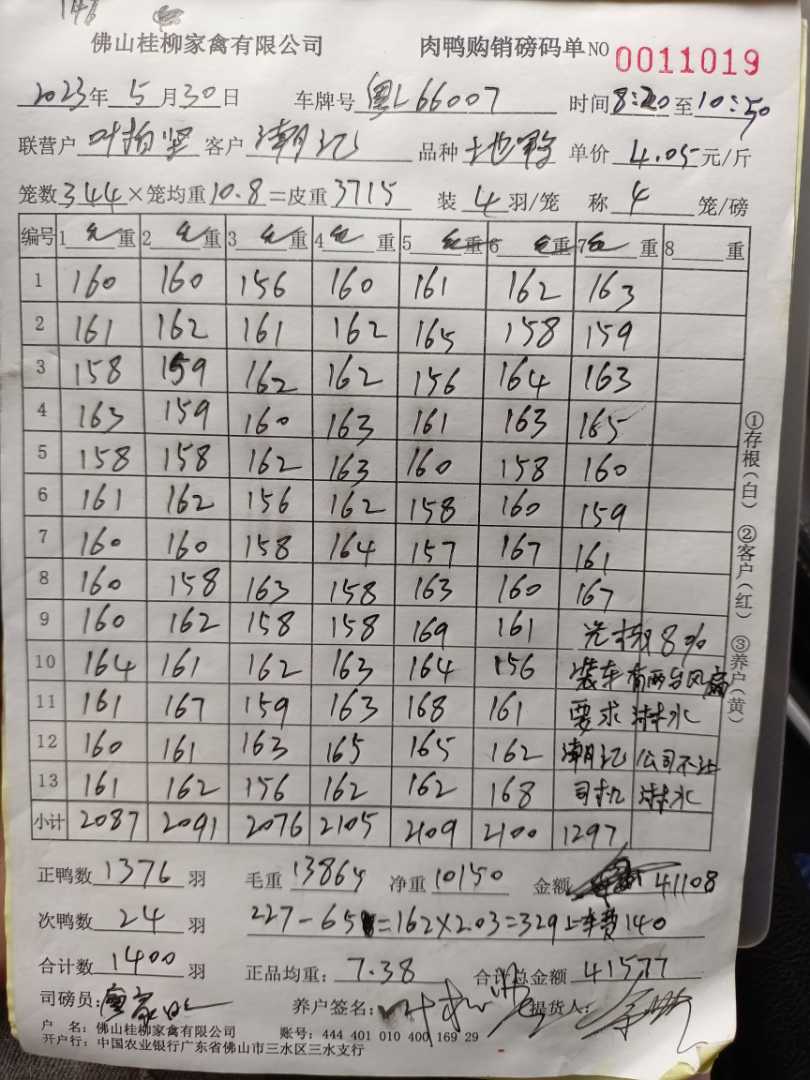 146
佛山桂柳家禽有限公司 肉鸭购销磅码单 NO 0011019
2023年5月30日 车牌号 粤L66007 时间 8:20至10:50
联营户 叶柏坚 客户 潮记 品种 土地鸭 单价 4.05元/斤
笼数344×笼均重10.8=皮重3715 装4羽/笼 称4笼/磅
编号 1 毛 重 2 毛 重 3 毛 重 4 毛 重 5 毛 重 6 毛 重 7 毛 重 8 重
1 160 160 156 160 161 162 163
2 161 162 161 162 165 158 159
3 158 159 162 162 156 164 163
4 163 159 160 163 161 163 165
5 158 158 162 163 160 158 160
6 161 162 156 162 158 160 159
7 160 160 158 164 157 167 161
8 160 158 163 158 163 160 167
9 160 162 158 158 169 161 8%
10 164 161 162 163 164 156 装车有两台风扇
11 161 167 159 163 168 161 要求淋水
12 160 161 163 165 165 162 潮记公司不让
13 161 162 156 162 162 168 司机淋水
小计 2087 2091 2076 2105 2109 2100 1297
正鸭数1376羽 毛重 13865 净重 10150 金额 41108
次鸭数24羽 227-65=162×2.03=329上车费140
合计数1400羽 正品均重:7.38 合计总金额 41577
司磅员: 养户签名: 提货人:
户 名:佛山桂柳家禽有限公司 账号:444 401 010 400 169 29
开户行:中国农业银行广东省佛山市三水区三水支行
①存根(白) ②客户(红) ③养户(黄)